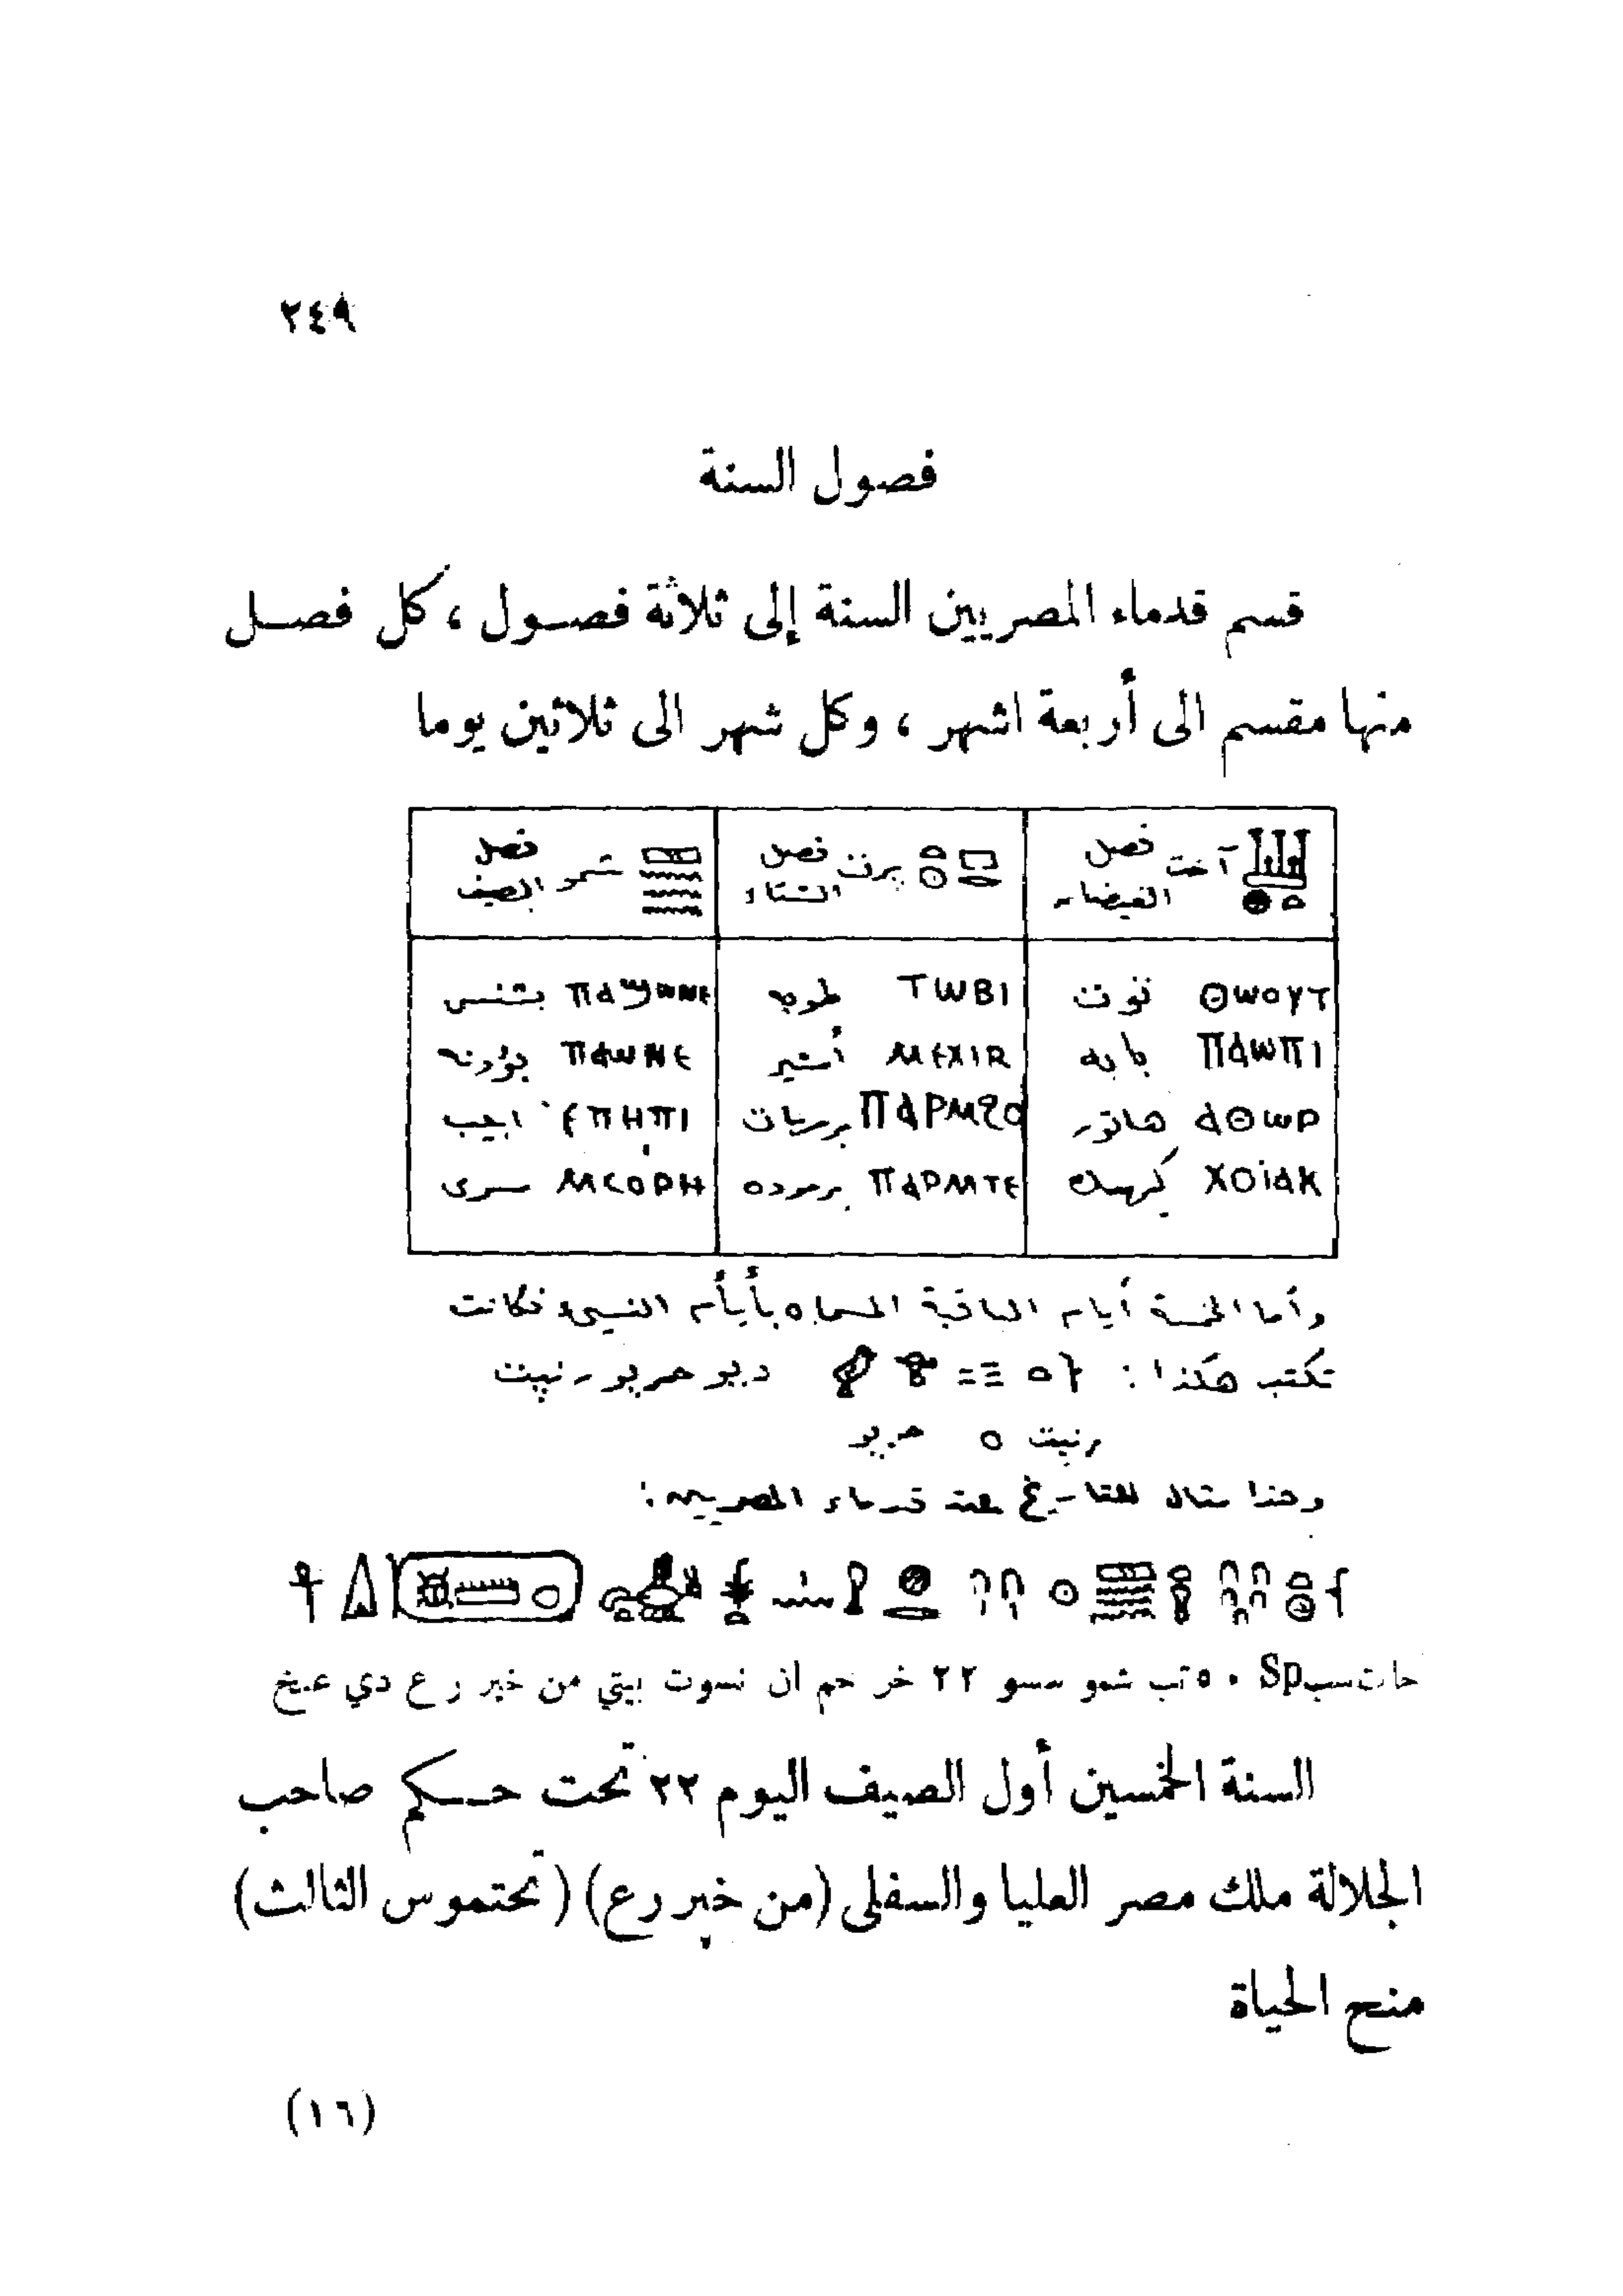 ٢٤٩
فصول السنة
قسم قدماء المصريين السنة إلى ثلاثة فصول ، كل فصل
منها مقسم الى أربعة اشهر ، وكل شهر الى ثلاثين يوما
آخت فصل الفيضان
برت فصل الشتاء
شمو فصل الصيف
ⲐⲰⲞⲨⲦ توت ⲦⲰⲂⲒ طوبه ⲠⲀϢⲰⲚⲈ بشنس
ⲠⲀⲰⲠⲒ بابه ⲘⲈⲬⲒR أمشير ⲠⲀⲰⲚⲈ بؤونه
ⲀⲐⲰⲢ هاتور ⲠⲀⲢⲘϨⲞ برمهات ⲈⲠⲎⲠⲒ ابيب
ⲬⲞⲒⲀⲔ كيهك ⲠⲀⲢⲘⲦⲈ برموده ⲘⲤⲞⲢⲎ مسرى
وأما الخمسة أيام الباقية المسماه بأيام النسيء فكانت
تكتب هكذا : ديو حريو رنبت
رنبت ٥ حريو
وهذا مثال للتاريخ عند قدماء المصريين :
حات سب Sp ٥٠ تب شمو سسو ٢٢ خر حم ان نسوت بيتي من خبر رع دي عنخ
السنة الخمسين أول الصيف اليوم ٢٢ تحت حكم صاحب
الجلالة ملك مصر العليا والسفلى (من خبر رع) (تحتموس الثالث)
منح الحياة
(١٦)